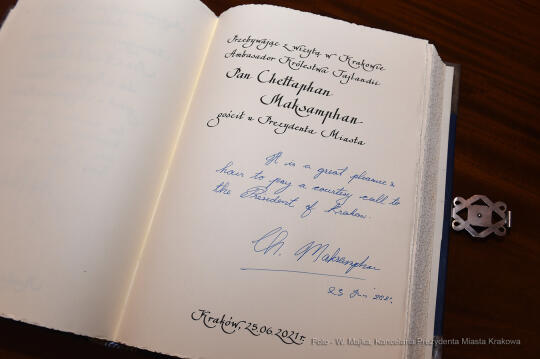 Przebywając z wizytą w Krakowie
Ambasador Królestwa Tajlandii
Pan Chettaphan
Maksamphan
gościł u Prezydenta Miasta
It is a great pleasure
hair to pay a courtesy call to
the President of Krakow.
Ch. Maksamphan
23 Jun 2021.
Kraków, 23.06.2021 r.
Foto - W. Majka, Kancelaria Prezydenta Miasta Krakowa